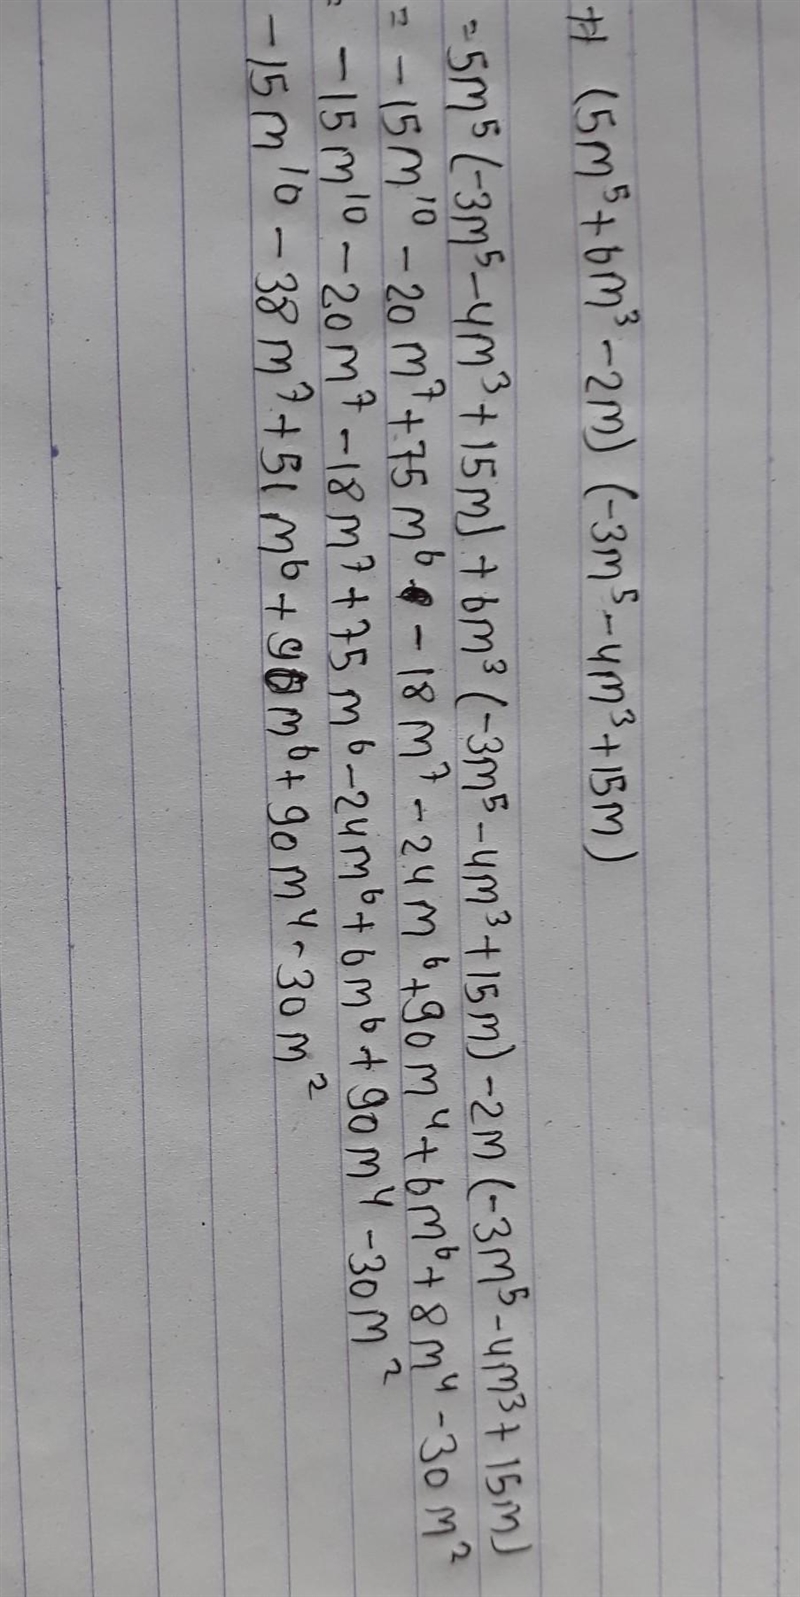 # (5m⁵+6m³-2m) (-3m⁵-4m³+15m)
=5m⁵(-3m⁵-4m³+15m)+6m³(-3m⁵-4m³+15m)-2m(-3m⁵-4m³+15m)
= -15m¹⁰-20m⁷+75m⁶-18m⁷-24m⁶+90m⁴+6m⁶+8m⁴-30m²
= -15m¹⁰-20m⁷-18m⁷+75m⁶-24m⁶+6m⁶+90m⁴-30m²
-15m¹⁰-38m⁷+51m⁶+96m⁶+90m⁴-30m²